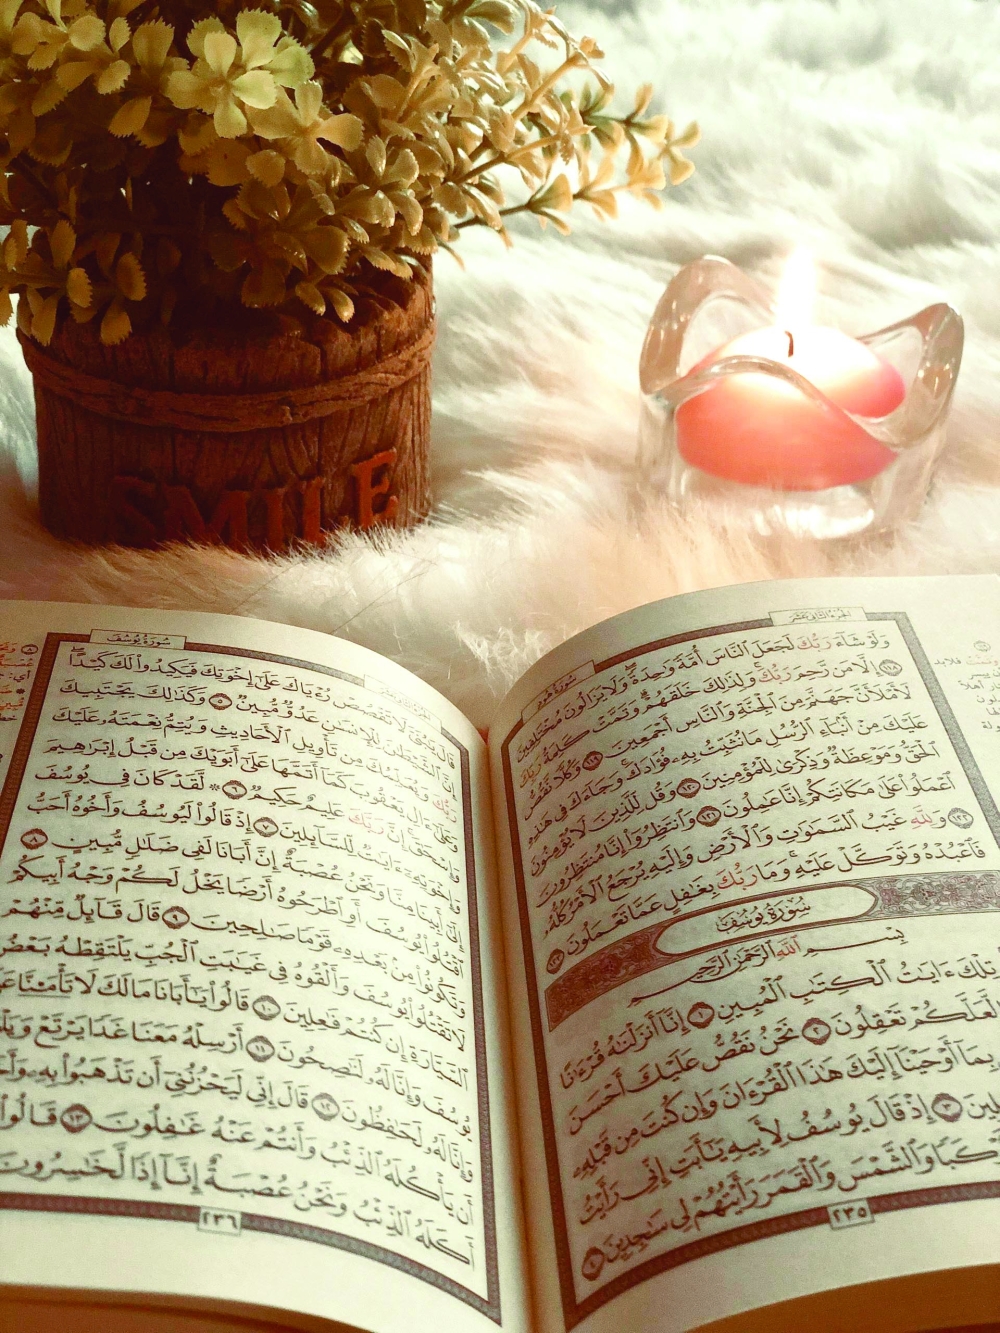 SMILE
الجزء الثاني عشر
سورة هود
وَلَوْ شَآءَ رَبُّكَ لَجَعَلَ ٱلنَّاسَ أُمَّةً وَٰحِدَةً ۖ وَلَا يَزَالُونَ مُخْتَلِفِينَ
١١٨ إِلَّا مَن رَّحِمَ رَبُّكَ ۚ وَلِذَٰلِكَ خَلَقَهُمْ ۗ وَتَمَّتْ كَلِمَةُ رَبِّكَ
لَأَمْلَأَنَّ جَهَنَّمَ مِنَ ٱلْجِنَّةِ وَٱلنَّاسِ أَجْمَعِينَ ١١٩ وَكُلًّا نَّقُصُّ
عَلَيْكَ مِنْ أَنۢبَآءِ ٱلرُّسُلِ مَا نُثَبِّتُ بِهِۦ فُؤَادَكَ ۚ وَجَآءَكَ فِى هَٰذِهِ
ٱلْحَقُّ وَمَوْعِظَةٌ وَذِكْرَىٰ لِلْمُؤْمِنِينَ ١٢٠ وَقُل لِّلَّذِينَ لَا يُؤْمِنُونَ
ٱعْمَلُوا۟ عَلَىٰ مَكَانَتِكُمْ إِنَّا عَٰمِلُونَ ١٢١ وَٱنتَظِرُوٓا۟ إِنَّا مُنتَظِرُونَ
١٢٢ وَلِلَّهِ غَيْبُ ٱلسَّمَٰوَٰتِ وَٱلْأَرْضِ وَإِلَيْهِ يُرْجَعُ ٱلْأَمْرُ كُلُّهُۥ
فَٱعْبُدْهُ وَتَوَكَّلْ عَلَيْهِ ۚ وَمَا رَبُّكَ بِغَٰفِلٍ عَمَّا تَعْمَلُونَ ١٢٣
سُورَةُ يُوسُفَ
بِسْمِ ٱللَّهِ ٱلرَّحْمَٰنِ ٱلرَّحِيمِ
تِلْكَ ءَايَٰتُ ٱلْكِتَٰبِ ٱلْمُبِينِ ١ إِنَّآ أَنزَلْنَٰهُ قُرْءَٰنًا
لَّعَلَّكُمْ تَعْقِلُونَ ٢ نَحْنُ نَقُصُّ عَلَيْكَ أَحْسَنَ
بِمَآ أَوْحَيْنَآ إِلَيْكَ هَٰذَا ٱلْقُرْءَانَ وَإِن كُنتَ مِن قَبْلِهِۦ
٣ إِذْ قَالَ يُوسُفُ لِأَبِيهِ يَٰٓأَبَتِ إِنِّى رَأَيْتُ
وَٱلشَّمْسَ وَٱلْقَمَرَ رَأَيْتُهُمْ لِى سَٰجِدِينَ ٤
٢٣٥
سورة يوسف
قَالَ يَٰبُنَىَّ لَا تَقْصُصْ رُءْيَاكَ عَلَىٰٓ إِخْوَتِكَ فَيَكِيدُوا۟ لَكَ كَيْدًا ۖ
إِنَّ ٱلشَّيْطَٰنَ لِلْإِنسَٰنِ عَدُوٌّ مُّبِينٌ ٥ وَكَذَٰلِكَ يَجْتَبِيكَ
رَبُّكَ وَيُعَلِّمُكَ مِن تَأْوِيلِ ٱلْأَحَادِيثِ وَيُتِمُّ نِعْمَتَهُۥ عَلَيْكَ
وَعَلَىٰٓ ءَالِ يَعْقُوبَ كَمَآ أَتَمَّهَا عَلَىٰٓ أَبَوَيْكَ مِن قَبْلُ إِبْرَٰهِيمَ
وَإِسْحَٰقَ ۚ إِنَّ رَبَّكَ عَلِيمٌ حَكِيمٌ ٦ ۞ لَّقَدْ كَانَ فِى يُوسُفَ
وَإِخْوَتِهِۦٓ ءَايَٰتٌ لِّلسَّآئِلِينَ ٧ إِذْ قَالُوا۟ لَيُوسُفُ وَأَخُوهُ أَحَبُّ
إِلَىٰٓ أَبِينَا مِنَّا وَنَحْنُ عُصْبَةٌ إِنَّ أَبَانَا لَفِى ضَلَٰلٍ مُّبِينٍ ٨
ٱقْتُلُوا۟ يُوسُفَ أَوِ ٱطْرَحُوهُ أَرْضًا يَخْلُ لَكُمْ وَجْهُ أَبِيكُمْ
وَتَكُونُوا۟ مِنۢ بَعْدِهِۦ قَوْمًا صَٰلِحِينَ ٩ قَالَ قَآئِلٌ مِّنْهُمْ
لَا تَقْتُلُوا۟ يُوسُفَ وَأَلْقُوهُ فِى غَيَٰبَتِ ٱلْجُبِّ يَلْتَقِطْهُ بَعْضُ
ٱلسَّيَّارَةِ إِن كُنتُمْ فَٰعِلِينَ ١٠ قَالُوا۟ يَٰٓأَبَانَا مَا لَكَ لَا تَأْمَ۫نَّا
يُوسُفَ وَإِنَّا لَهُۥ لَنَٰصِحُونَ ١١ أَرْسِلْهُ مَعَنَا غَدًا يَرْتَعْ
وَإِنَّا لَهُۥ لَحَٰفِظُونَ ١٢ قَالَ إِنِّى لَيَحْزُنُنِىٓ أَن تَذْهَبُوا۟ بِهِۦ
أَن يَأْكُلَهُ ٱلذِّئْبُ وَأَنتُمْ عَنْهُ غَٰفِلُونَ ١٣ قَالُوا۟
أَكَلَهُ ٱلذِّئْبُ وَنَحْنُ عُصْبَةٌ إِنَّآ إِذًا لَّخَٰسِرُونَ
٢٣٦